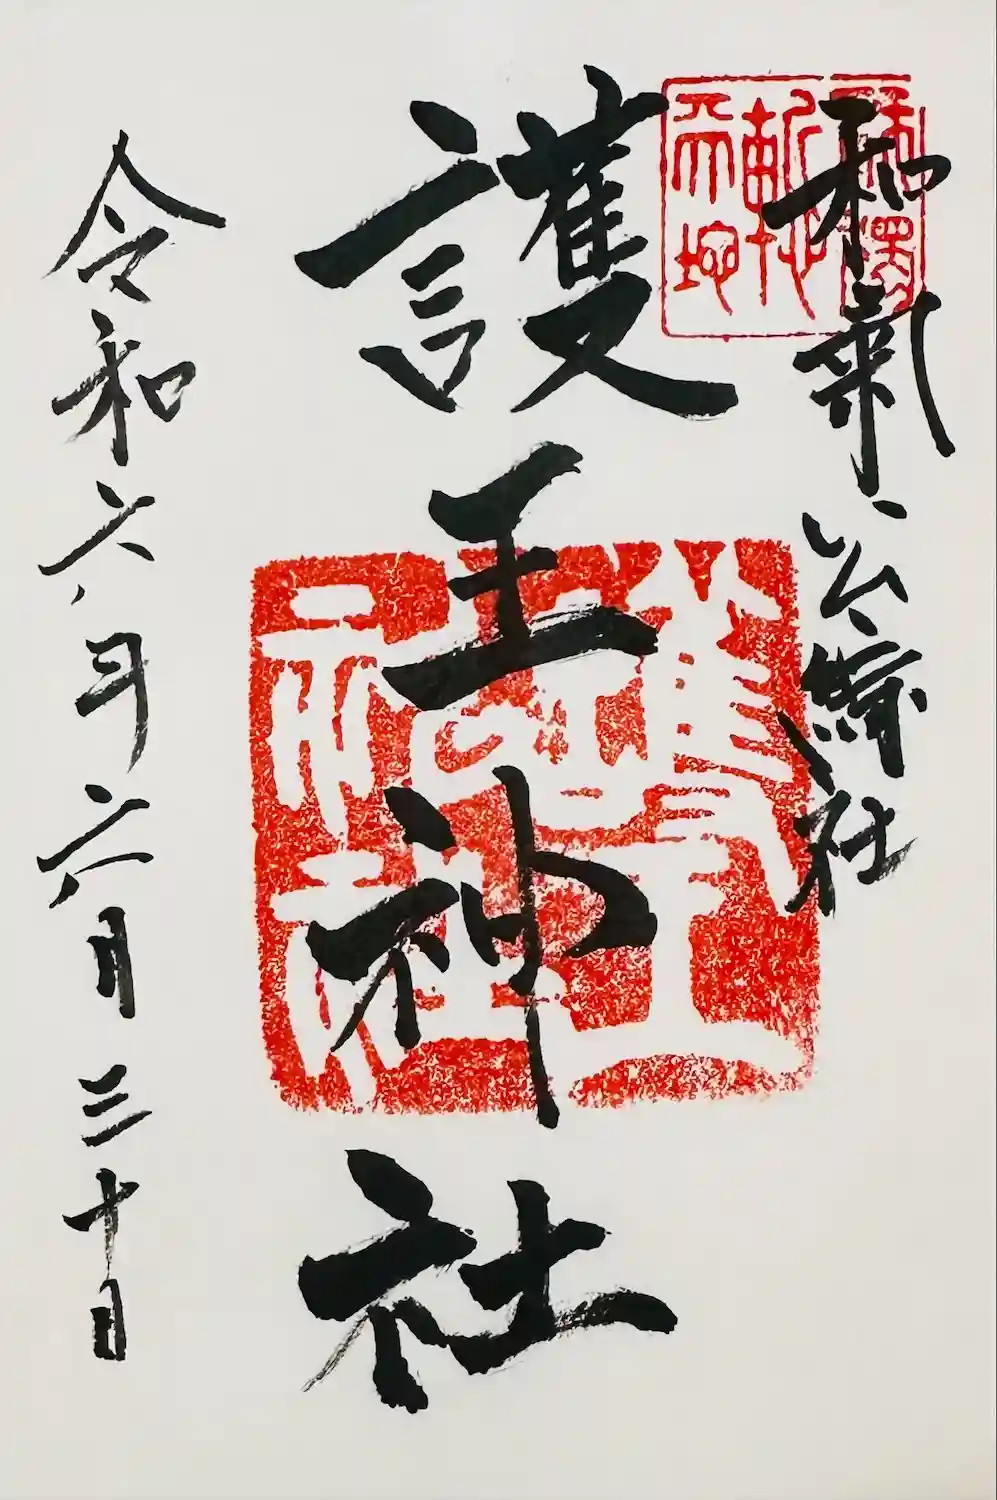 和氣公綜社
護王神社
令和六年六月三十日